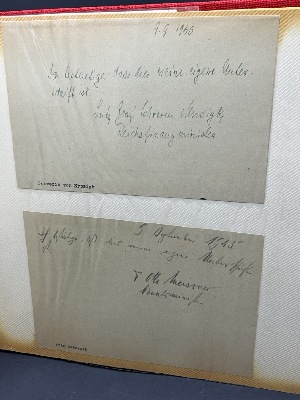 9.9.1945
Ich bestätige, dass dies meine eigene Unter-
schrift ist.
Lutz Graf Schwerin von Krosigk,
Reichsfinanzminister
Schwerin von Krosigk
9 September 1945
Ich bestätige, dass dies meine eigene Unterschrift
ist.
Dr Otto Meissner
Staatsminister
Otto Meissner